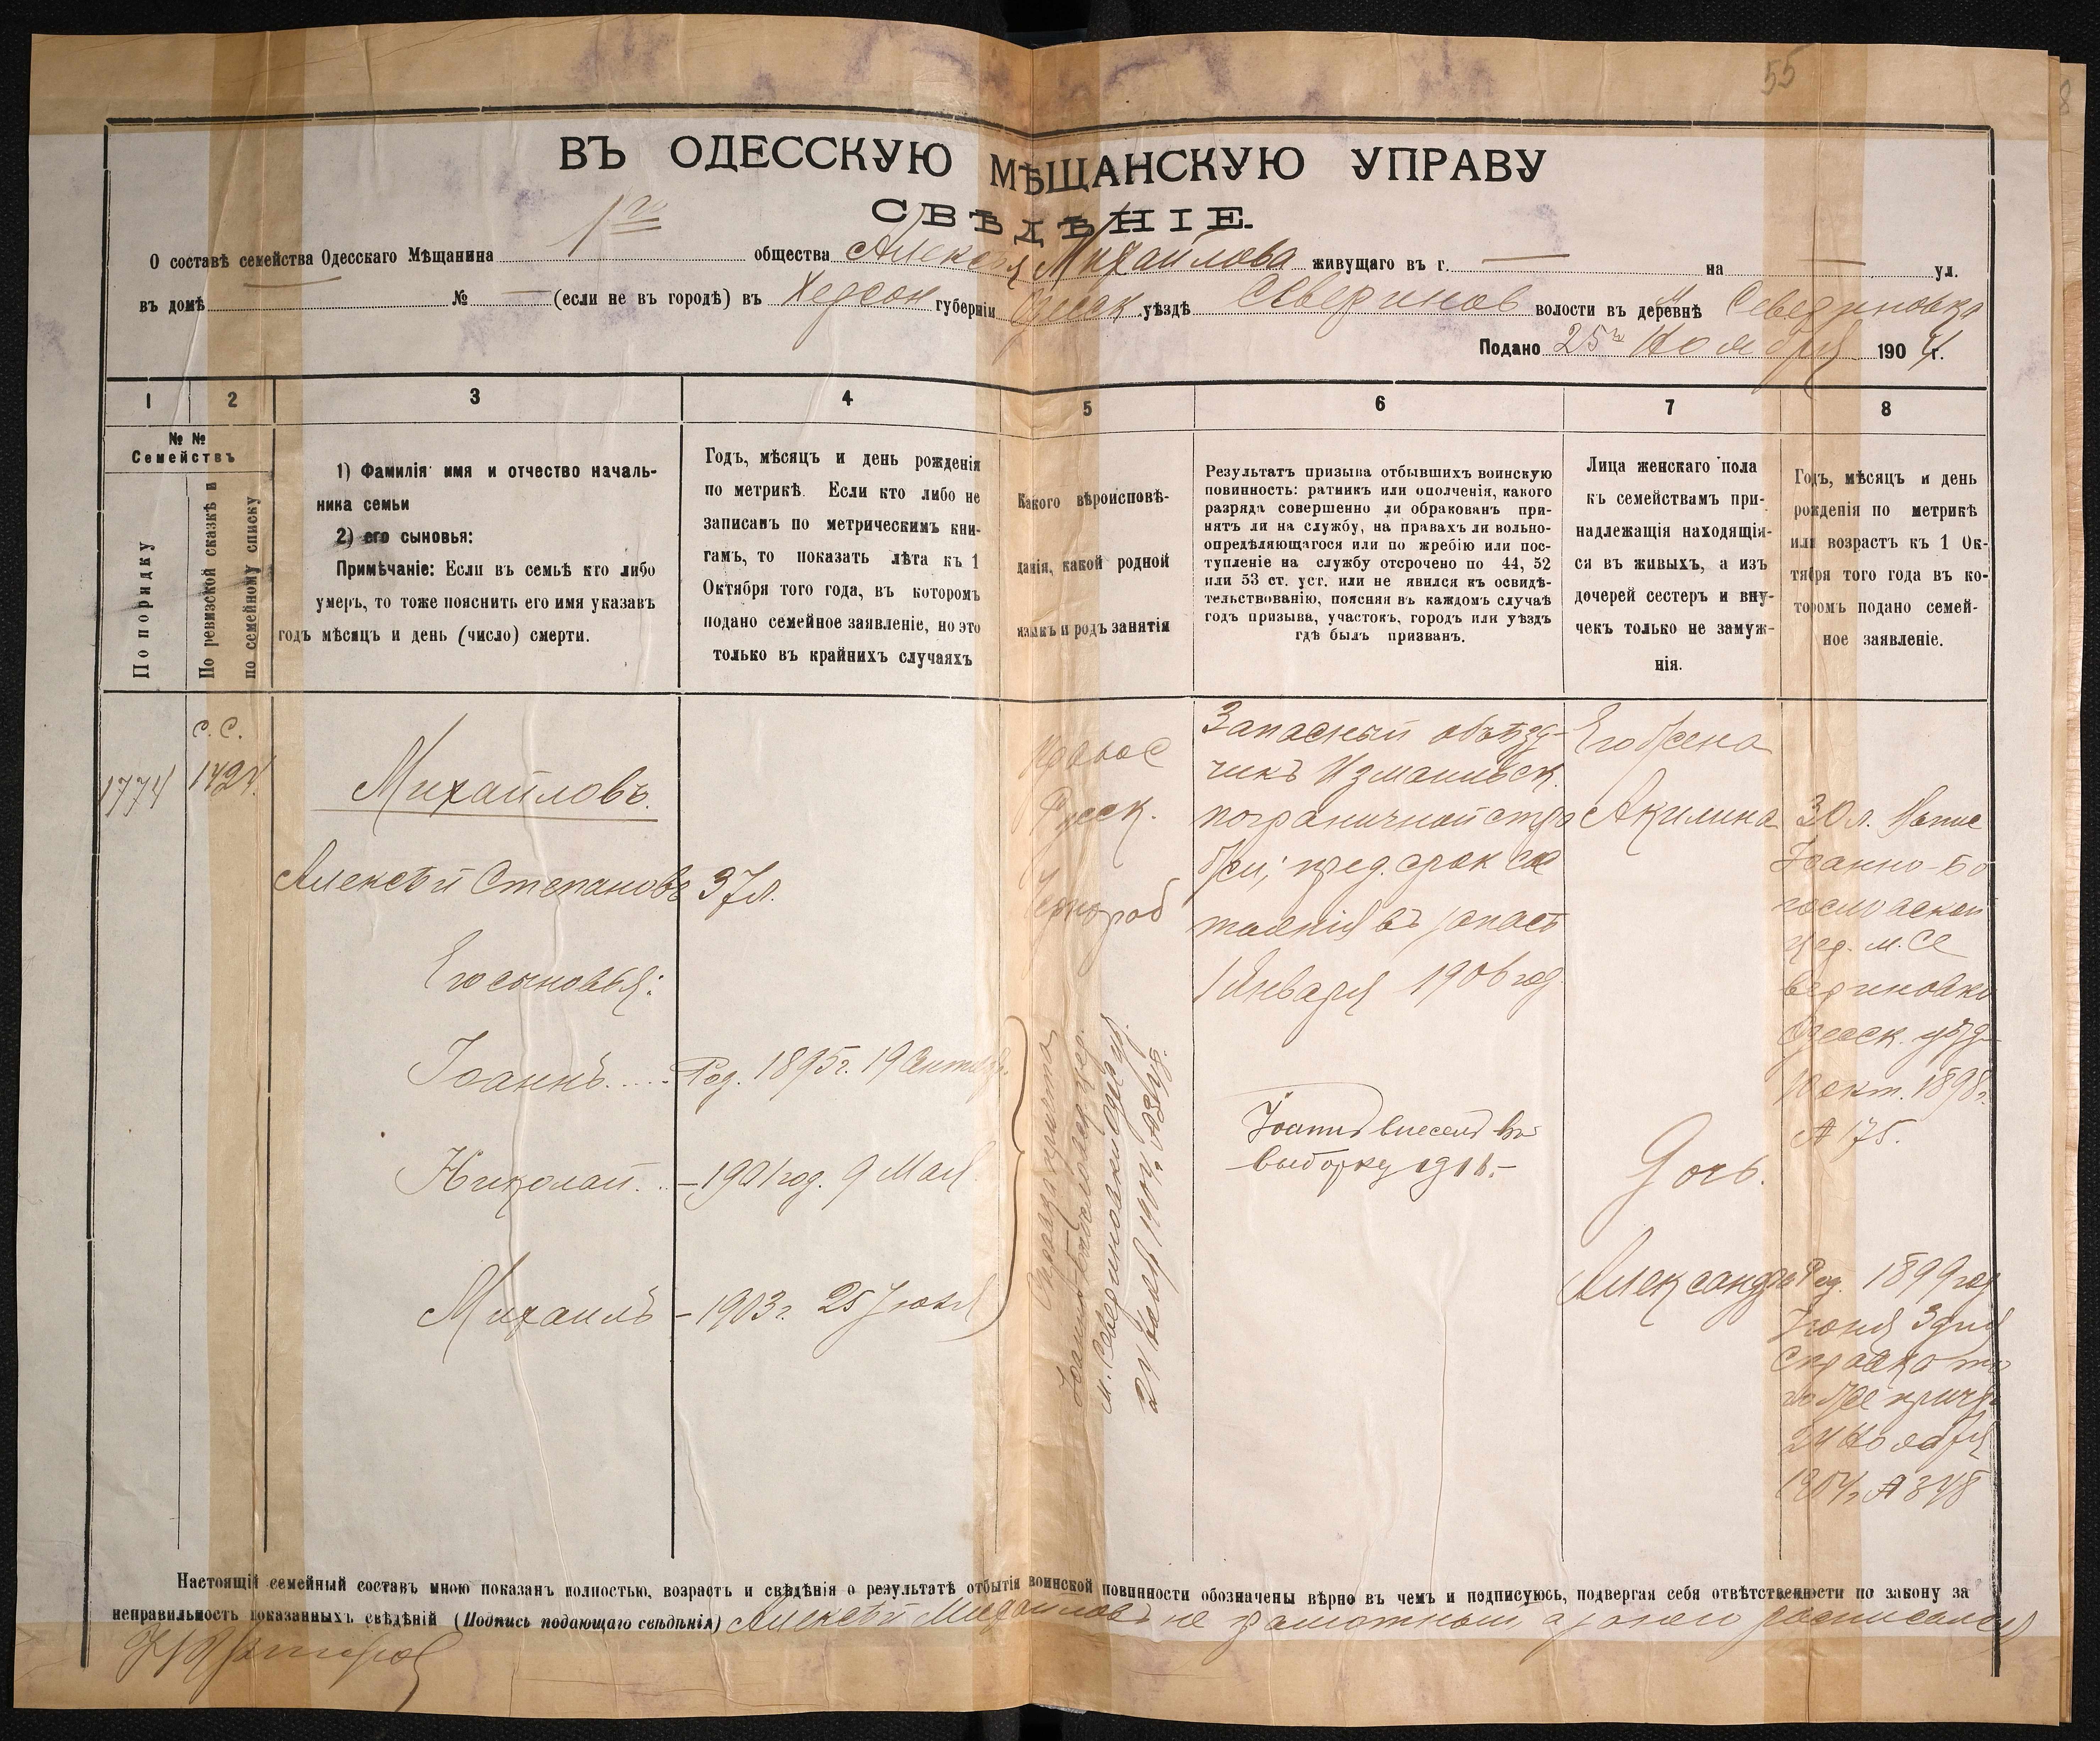 55
ВЪ ОДЕССКУЮ МѢЩАНСКУЮ УПРАВУ
СВѢДѢНІЕ.
О составѣ семейства Одесскаго Мѣщанина 1го общества Алексѣя Михайлова живущаго въ г. — на — ул.
въ домѣ — № — (если не въ городѣ) въ Херсон губерніи Одесск уѣздѣ Северинов волости въ деревнѣ м Севериновка
Подано 25го Ноября 1904 г.
1 2 3 4 5 6 7 8
№ №
Семействъ
По порядку
По ревизской сказкѣ и
по семейному списку
1) Фамилія имя и отчество началь-
ника семьи
2) его сыновья:
Примѣчаніе: Если въ семьѣ кто либо
умеръ, то тоже пояснить его имя указавъ
годъ мѣсяцъ и день (число) смерти.
Годъ, мѣсяцъ и день рожденія
по метрикѣ. Если кто либо не
записанъ по метрическимъ кни-
гамъ, то показать лѣта къ 1
Октября того года, въ которомъ
подано семейное заявленіе, но это
только въ крайнихъ случаяхъ
Какого вѣроисповѣ-
данія, какой родной
языкъ и родъ занятія
Результатъ призыва отбывшихъ воинскую
повинность: ратникъ или ополченія, какого
разряда совершенно ли обракованъ при-
нятъ ли на службу, на правахъ ли вольно-
опредѣляющагося или по жребію или пос-
тупленіе на службу отсрочено по 44, 52
или 53 ст. уст. или не явился къ освидѣ-
тельствованію, поясняя въ каждомъ случаѣ
годъ призыва, участокъ, городъ или уѣздъ
гдѣ былъ призванъ.
Лица женскаго пола
къ семействамъ при-
надлежащія находящія-
ся въ живыхъ, а изъ
дочерей сестеръ и вну-
чекъ только не замуж-
нія.
Годъ, мѣсяцъ и день
рожденія по метрикѣ
или возрастъ къ 1 Ок-
тября того года въ ко-
торомъ подано семей-
ное заявленіе.
1774
с. с.
1424.
Михайловъ.
Алексѣй Степановъ 37л.
Его сыновья:
Іоаннъ..... Род. 1895г. 19 Сентяб.
Николай... – 1901 год. 9 Мая
Михаилъ – 1903г. 25 Іюня
Правос
Русск.
Чернораб
Справка причта
Іоанно Богословск. цер.
м. Севериновки Одес. у.
24 Ноября 1904г. №348.
Запасный объѣзд-
чикъ Измаильск.
пограничной стра
жи; пред. срок со
стоянія въ запасѣ
1 Января 1906 год.
Іоаннъ внесенъ въ
выборку 1916.–
Его жена
Акилина
Дочь.
Александра
30 л. Выпис
Іоанно-Бо
гословской
цер. м. Се
вериновки
Одесск. уѣзд
10 окт. 1898г.
№ 175.
Род. 1899 год
Іюня 3 дня
Справка то
го же причта
24 Ноября
1904г. № 348
Настоящій семейный составъ мною показанъ полностью, возрастъ и свѣдѣнія о результатѣ отбытія воинской повинности обозначены вѣрно въ чемъ и подписуюсь, подвергая себя отвѣтственности по закону за
неправильность показанныхъ свѣдѣній (Подпись подающаго свѣдѣнія) Алексѣй Михайловъ не грамотный а за него росписался